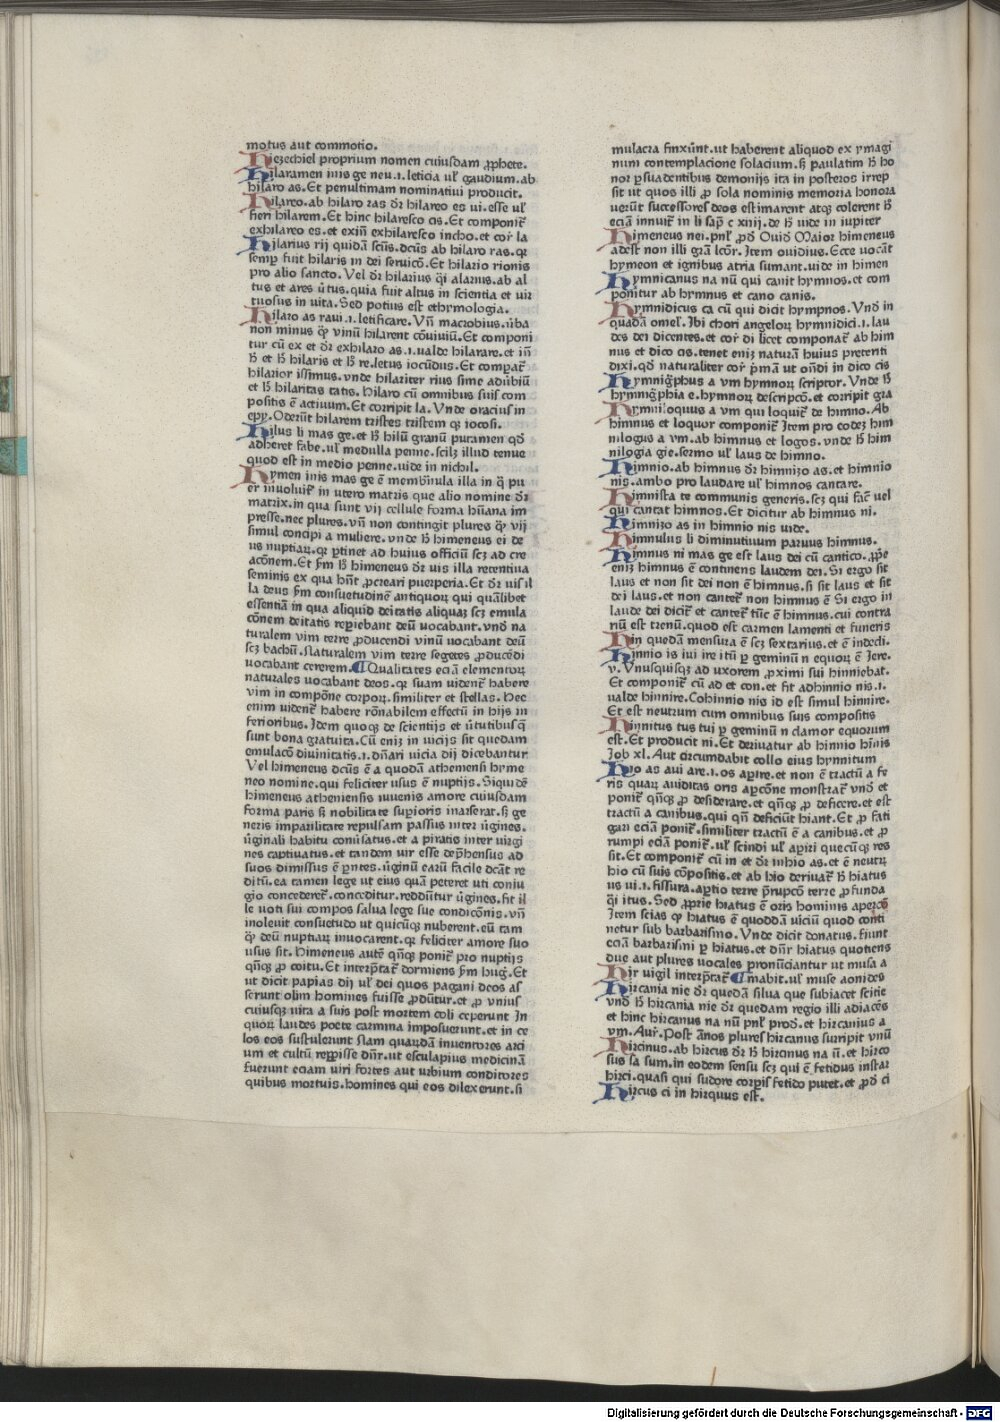 motus aut commotio.
Hiezechiel proprium nomen cuiusdam ꝓphete.
Hilaramen inis ge neu.ı.leticia ul̕ gaudium.ab
hilaro as.Et penultimam nominatiui producit.
Hilareo.ab hilaro ras dr̄ hilareo es ui.esse ul̕
fieri hilarem.Et hinc hilaresco cis.Et componit᷑
exhilareo es.et exin̄ exhilaresco incho.et cor̄ la
Hilarius rij quidā sc̄us.dc̄us ab hilaro ras.qꝛ
semꝑ fuit hilaris in dei seruicō.Et hilario rionis
pro alio sancto.Vel dr̄ hilarius q̄i alarius.ab al
tus et ares u̓tus.quia fuit altus in scientia et uir
tuosus in uita.Sed potius est ethymologia.
Hilaro as raui.ı.letificare.Vn̄ macrobius.u̓ba
non minus qꝫ vinū hilarent cōuiuiū.Et componi
tur cū ex et dr̄ exhilaro as.ı.ualde hilarare.et in̄
h̄ et h̄ hilaris et h̄ re.letus iocūdus.Et comꝑat᷑
hilarior issimus.vnde hilariter rius sime aduḃiū
et h̄ hilaritas tatis. Hilaro cū omnibus suis com
positis ē actiuum.Et corripit la.Vnde oracius in
epy.Oderūt hilarem tristes tristem qꝫ iocosi.
Hilus li mas ge.et h̄ hilū granū puramen qd̄
adheret fabe.ul̕ medulla penne.scilꝫ illud tenue
quod est in medio penne.uide in nichil.
Hymen inis mas ge ē memb̓nula illa in q̄ pu
er inuoluit᷑ in utero matris que alio nomine dr̄
matrix.in qua sunt vij cellule forma hūana im
presse.nec plures.vn̄ non contingit plures qꝫ vij
simul concipi a muliere.vnde h̄ himeneus ei de
us nuptiaꝝ.qꝛ ꝑtinet ad huius officiū scꝫ ad cre
acōnem.Et ẜm h̄ himeneus dr̄ uis illa retentiua
seminis ex qua hn̄t ꝓcreari puerperia.Et dr̄ uis il
la deus ẜm consuetudinē antiquoꝝ qui quālibet
essentiā in qua aliquid deitatis aliquaꝫ scꝫ emula
cōnem deitatis reꝑiebant deū uocabant.vnd̄ na
turalem vim terre ꝓducendi vinū uocabant deū
scꝫ bachū.Naturalem vim terre segetes ꝓducēdi
uocabant cererem.¶Qualitates eciā elementoꝝ
naturales uocabant deos.qꝛ suam uident᷑ habere
vim in compōne corpoꝝ.similiter et stellas.Hec
enim uident᷑ habere rōnabilem effectū in hijs in
ferioribus.Idem quoqꝫ de scientijs et u̓tutibus q̄
sunt bona gratuita.Cū eniꝫ in uicijs sit quedam
emulacō diuinitatis.ı.dn̄ari uicia dij dicebantur
Vel himeneus dc̄us ē a quodā athemensi hyme
neo nomine.qui feliciter usus ē nuptijs.Siquidē
himeneus atheniensis iuuenis amore cuiusdam
forma paris ẜꝫ nobilitate suꝑioris inarserat.ẜꝫ ge
neris imparilitate repulsam passus inter u̓gines.
u̓ginali habitu conu̓satus.et a piratis inter uirgi
nes captiuatus.et tandem uir esse deꝑhensus ad
suos dimissus ē ꝑntes.u̓ginū earū facile dcāt re
ditū.ea tamen lege ut eius quā peteret uti coniu
gio concederet᷑.conceditur.reddūtur u̓gines.fit il
le uoti sui compos salua lege sue condicōnis.vn̄
inoleuit consuetudo ut quicūqꝫ nuberent.eū tam
qꝫ deū nuptiaꝝ inuocarent.qꝛ feliciter amore suo
usus sit.Himeneus autē qn̄qꝫ ponit᷑ pro nuptijs
qn̄qꝫ ꝓ coitu.Et interp̄tat᷑ dormiens ẜm hug̓.Et
ut dicit papias dij ul̕ dei quos pagani deos as
serunt olim homines fuisse ꝓdūtur.et ꝓ vnius
cuiusqꝫ uita a suis post mortem coli ceperunt In
quoꝝ laudes poete carmina imposuerunt.et in ce
los eos sustulerunt Nam quarūdā inuentores arci
um et cultū reꝑisse dn̄r.ut esculapius medicinā
fuerunt eciam uiri fortes aut urbium conditores
quibus mortuis.homines qui eos dilexerunt.si
mulacra finxūnt.ut haberent aliquod ex ymagi
num contemplacione solacium.ẜꝫ paulatim h̄ ho
nor ꝑsuadentibus demonijs ita in posteros irrep
sit ut quos illi ꝓ sola nominis memoria honora
uerūt successores deos estimarent atqꝫ colerent h̄
eciā innuit᷑ in li sap̄ c xiiij.de h̄ uide in iupiter
Himeneus nei.pnl̕ ꝓd̓ Ouid̓ Maior himeneus
adest non illi grā lcōr.Item ouidius.Ecce uocāt
hymeon et ignibus atria sumant.uide in himen
Hymnicanus na nū qui canit hymnos.et com
ponitur ab hymnus et cano canis.
Hymnidicus ca cū qui dicit hympnos.Vnd̄ in
quadā omel̕.Ibi chori angeloꝝ hymnidici.ı.lau
des dei dicentes.et cor̄ di licet componat᷑ ab him
nus et dico cis.tenet eniꝫ naturā huius preteriti
dixi.qd̄ naturaliter cor̄ p̓mā ut on̄di in dico cis
Hymnig̓phus a vm hymnoꝝ scriptor.Vnde h̄
hymnig̓phia e.hymnoꝝ descripcō.et corripit gra
Hymniloquus a vm qui loquit᷑ de himno.Ab
himnus et loquor componit᷑ Item pro codeꝫ him
nilogus a vm.ab himnus et logos.vnde h̄ him
nilogia gie.sermo ul̕ laus de himno.
Himnio.ab himnus dr̄ himnizo as.et himnio
nis.ambo pro laudare ul̕ himnos cantare.
Himnista te communis generis.scꝫ qui fac̄ uel
qui cantat himnos.Et dicitur ab himnus ni.
Himnizo as in himnio nis uide.
Himnulus li diminutiuum paruus himnus.
Himnus ni mas ge est laus dei cū cantico.ꝓp̄e
eniꝫ himnus ē continens laudem dei.Si ergo sit
laus et non sit dei non ē himnus.si sit laus et sit
dei laus.et non cantet᷑ non himnus ē Si ergo in
laude dei dicit᷑ et cantet᷑ tūc ē himnus.cui contra
riū est trenū.quod est carmen lamenti et funeris
Hin quedā mensura ē scꝫ sextarius.et ē indecli.
Hinnio is iui ire itū ꝑ geminū n equoꝝ ē Iere.
v.Vnusquisqꝫ ad uxorem ꝓximi sui hinniebat.
Et componit᷑ cū ad et con.et fit adhinnio nis.ı.
ualde hinnire.Cohinnio nis id est simul hinnire.
Et est neutrum cum omnibus suis compositis
Hinnitus tus tui ꝑ geminū n clamor equorum
est.Et producit ni.Et deriuatur ab hinnio hīnis
Job xl.Aut circumdabit collo eius hynnitum
Hio as aui are.ı.os aꝑire.et non ē tractū a fe
ris quaꝝ auiditas oris aꝑcōne monstrat᷑ vnd̄ et
ponit᷑ qn̄qꝫ ꝓ desiderare.et qn̄qꝫ ꝓ deficere.et est
tractū a canibus.qui qn̄ deficiūt hiant.Et ꝓ fati
gari eciā ponit᷑.similiter tractū ē a canibus.et ꝓ
rumpi eciā ponit᷑.ul̕ scindi ul̕ aꝑiri quecūqꝫ res
sit.Et componit᷑ cū in et dr̄ inhio as.et ē neutꝝ
hio cū suis cōpositis.et ab hio deriuat᷑ h̄ hiatus
us ui.ı.fissura.aꝑtio terre p̄rupcō terre ꝓfunda
q̄i itus.Sed ꝓprie hiatus ē oris hominis aꝑcō
Item scias qꝫ hiatus ē quoddā uiciū quod conti
netur sub barbarismo.Vnde dicit donatus.fiunt
eciā barbarismi ꝑ hiatus.et dn̄r hiatus quotiens
due aut plures uocales pronūciantur ut musa a
Hir uigil interp̄tat᷑ ¶m̓abit.ul̕ muse aonides
Hircania nie dr̄ quedā silua que subiacet scitie
vnd̄ h̄ hircania nie dr̄ quedam regio illi adiacēs
et hinc hircanus na nū pnl̕ prod̓.et hircanius a
vm.Aur̓.Post ānos plures hircanus surripit vnū
Hircinus.ab hircus dr̄ h̄ hircinus na ū.et hirco
sus sa sum.in eodem sensu scꝫ qui ē fetidus instar
hirci.quasi qui sudore corꝑis fetido putet.et ꝓd̓ ci
Hircus ci in hirquus est.
Digitalisierung gefördert durch die Deutsche Forschungsgemeinschaft - DFG